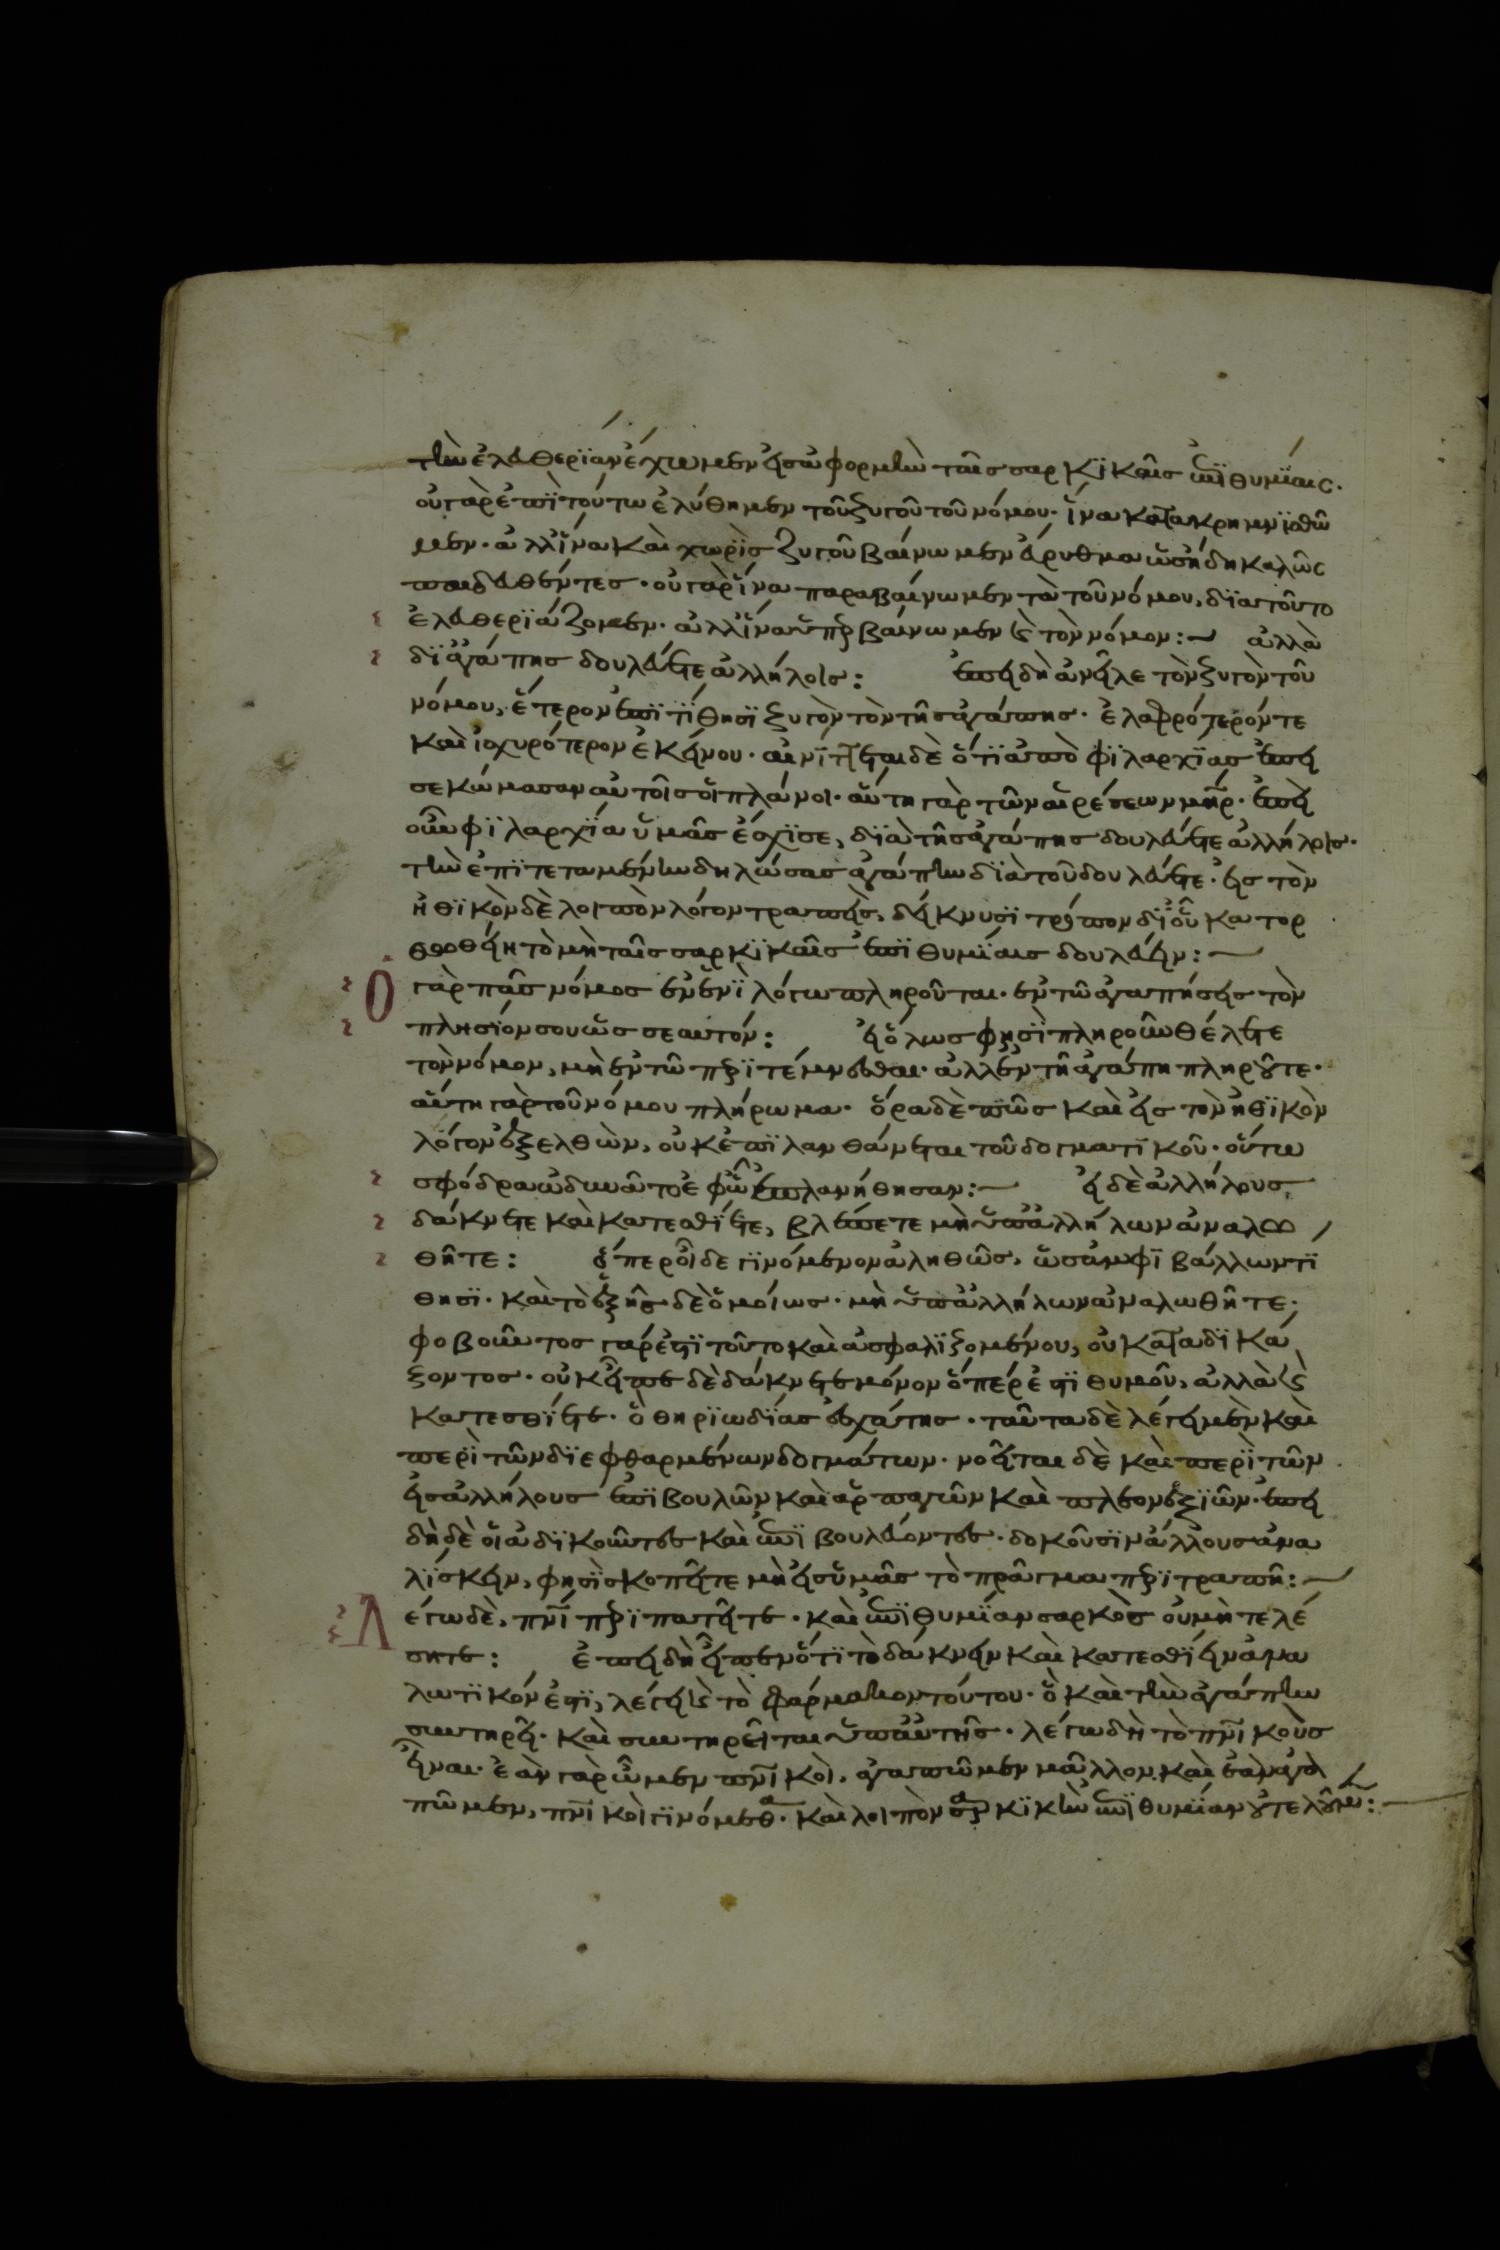 τὴν ἐλευθερίαν ἔχωμεν εἰς ἀφορμὴν ταῖς σαρκικαῖς ἐπιθυμίαις.
οὐ γὰρ ἐπὶ τούτω ἐλύθημεν τοῦ ζυγοῦ τοῦ νόμου. ἵνα κατακρημνισθῶ
μεν. ἀλλ' ἵνα καὶ χωρὶς ζυγοῦ βαίνωμεν εὔρυθμα ὡς ἤδη καλῶς
παιδευθέντες. οὐ γὰρ ἵνα παραβαίνωμεν τὰ τοῦ νόμου, διατοῦτο
ἐλευθεριάζομεν. ἀλλ' ἵνα ὑπερβαίνωμεν καὶ τὸν νόμον: ~ ἀλλὰ
δι' ἀγάπης δουλεύετε ἀλλήλοις: ἐπειδὴ ἀνεῖλε τὸν ζυγὸν τοῦ
νόμου, ἕτερον ἐπιτίθησι ζυγὸν τὸν τῆς ἀγάπης. ἐλαφρότερόν τε
καὶ ἰσχυρότερον ἐκείνου. αἰνίττεται δὲ ὅτι ἀπὸ φιλαρχίας ἐπει
σεκώμασαν αὐτοῖς οἱ πλάνοι. αὕτη γὰρ τῶν αἱρέσεων μήτηρ. ἐπεὶ
οὖν φιλαρχία ὑμᾶς ἔσχισε, διὰ τῆς ἀγάπης δουλεύετε ἀλλήλοις.
τὴν ἐπιτεταμένην δηλώσας ἀγάπην διὰ τοῦ δουλεύετε. εἰς τὸν
ἠθικὸν δὲ λοιπὸν λόγον τραπεὶς, δείκνυσι τρόπον δι' οὗ κατορ
θωθείη τὸ μὴ ταῖς σαρκικαῖς ἐπιθυμίαις δουλεύειν: ~
Ὁ γὰρ πᾶς νόμος ἐν ἑνὶ λόγω πληροῦται. ἐν τῶ ἀγαπήσεις τὸν
πλησίον σου ὡς σεαυτόν: εἰ ὅλως φησὶ πληροῦν θέλετε
τὸν νόμον, μὴ ἐν τῶ περιτέμνεσθαι. ἀλλ' ἐν τῆ ἀγάπη πληροῦτε.
αὕτη γὰρ τοῦ νόμου πλήρωμα. ὅρα δὲ πῶς καὶ εἰς τὸν ἠθικὸν
λόγον ἐξελθὼν, οὐκ ἐπιλανθάνεται τοῦ δογματικοῦ. οὕτω
σφόδρα ὠδυνᾶτο ἐφ' ὧ ἐπλανήθησαν: ~ εἰ δὲ ἀλλήλους
δάκνετε καὶ κατεσθίετε, βλέπετε μὴ ὑπ' ἀλλήλων ἀναλω
θῆτε: ὅπερ οἶδε γινόμενον ἀληθῶς, ὡς ἀμφιβάλλων τί
θησι. καὶ τὸ ἑξῆς δὲ ὁμοίως. μὴ ὑπ' ἀλλήλων ἀναλωθῆτε.
φοβοῦντος γάρ ἐστι τοῦτο καὶ ἀσφαλιζομένου, οὐ καταδικά
ζοντος. οὐκ εἶπε δὲ δάκνετε μόνον ὅπέρ ἐστι θυμοῦ, ἀλλὰ καὶ
κατεσθίετε. ὃ θηριωδίας ἐσχάτης. ταῦτα δὲ λέγει μὲν καὶ
περὶ τῶν διεφθαρμένων δογμάτων. νοεῖται δὲ καὶ περὶ τῶν
εἰς ἀλλήλους ἐπιβουλῶν καὶ ἁρπαγῶν καὶ πλεονεξιῶν. ἐπει
δὴ δὲ οἱ ἀδικοῦντες καὶ ἐπιβουλεύοντες. δοκοῦσιν ἄλλους ἀνα
λίσκειν, φησὶ σκοπεῖτε μὴ εἰς ὑμᾶς τὸ πρᾶγμα περιτραπῆ: ~
Λέγω δὲ, πνι περιπατεῖτε. καὶ ἐπιθυμίαν σαρκὸς οὐ μὴ τελέ
σητε: ἐπειδὴ εἶπεν ὅτι τὸ δάκνειν καὶ κατεσθίειν ἀνα
λωτικόν ἐστι, λέγει καὶ τὸ φάρμακον τούτου. ὃ καὶ τὴν ἀγάπην
συντηρεῖ. καὶ συντηρεῖται ὑπ' αὐτῆς. λέγω δὴ τὸ πνικοὺς
εἶναι. ἐὰν γὰρ ὦμεν πνικοὶ, ἀγαπῶμεν μᾶλλον. καὶ ἐὰν ἀγα
πῶμεν, πνικοὶ γινόμεθα. καὶ λοιπὸν σαρκικὴν ἐπιθυμίαν οὐ τελοῦμεν: ~